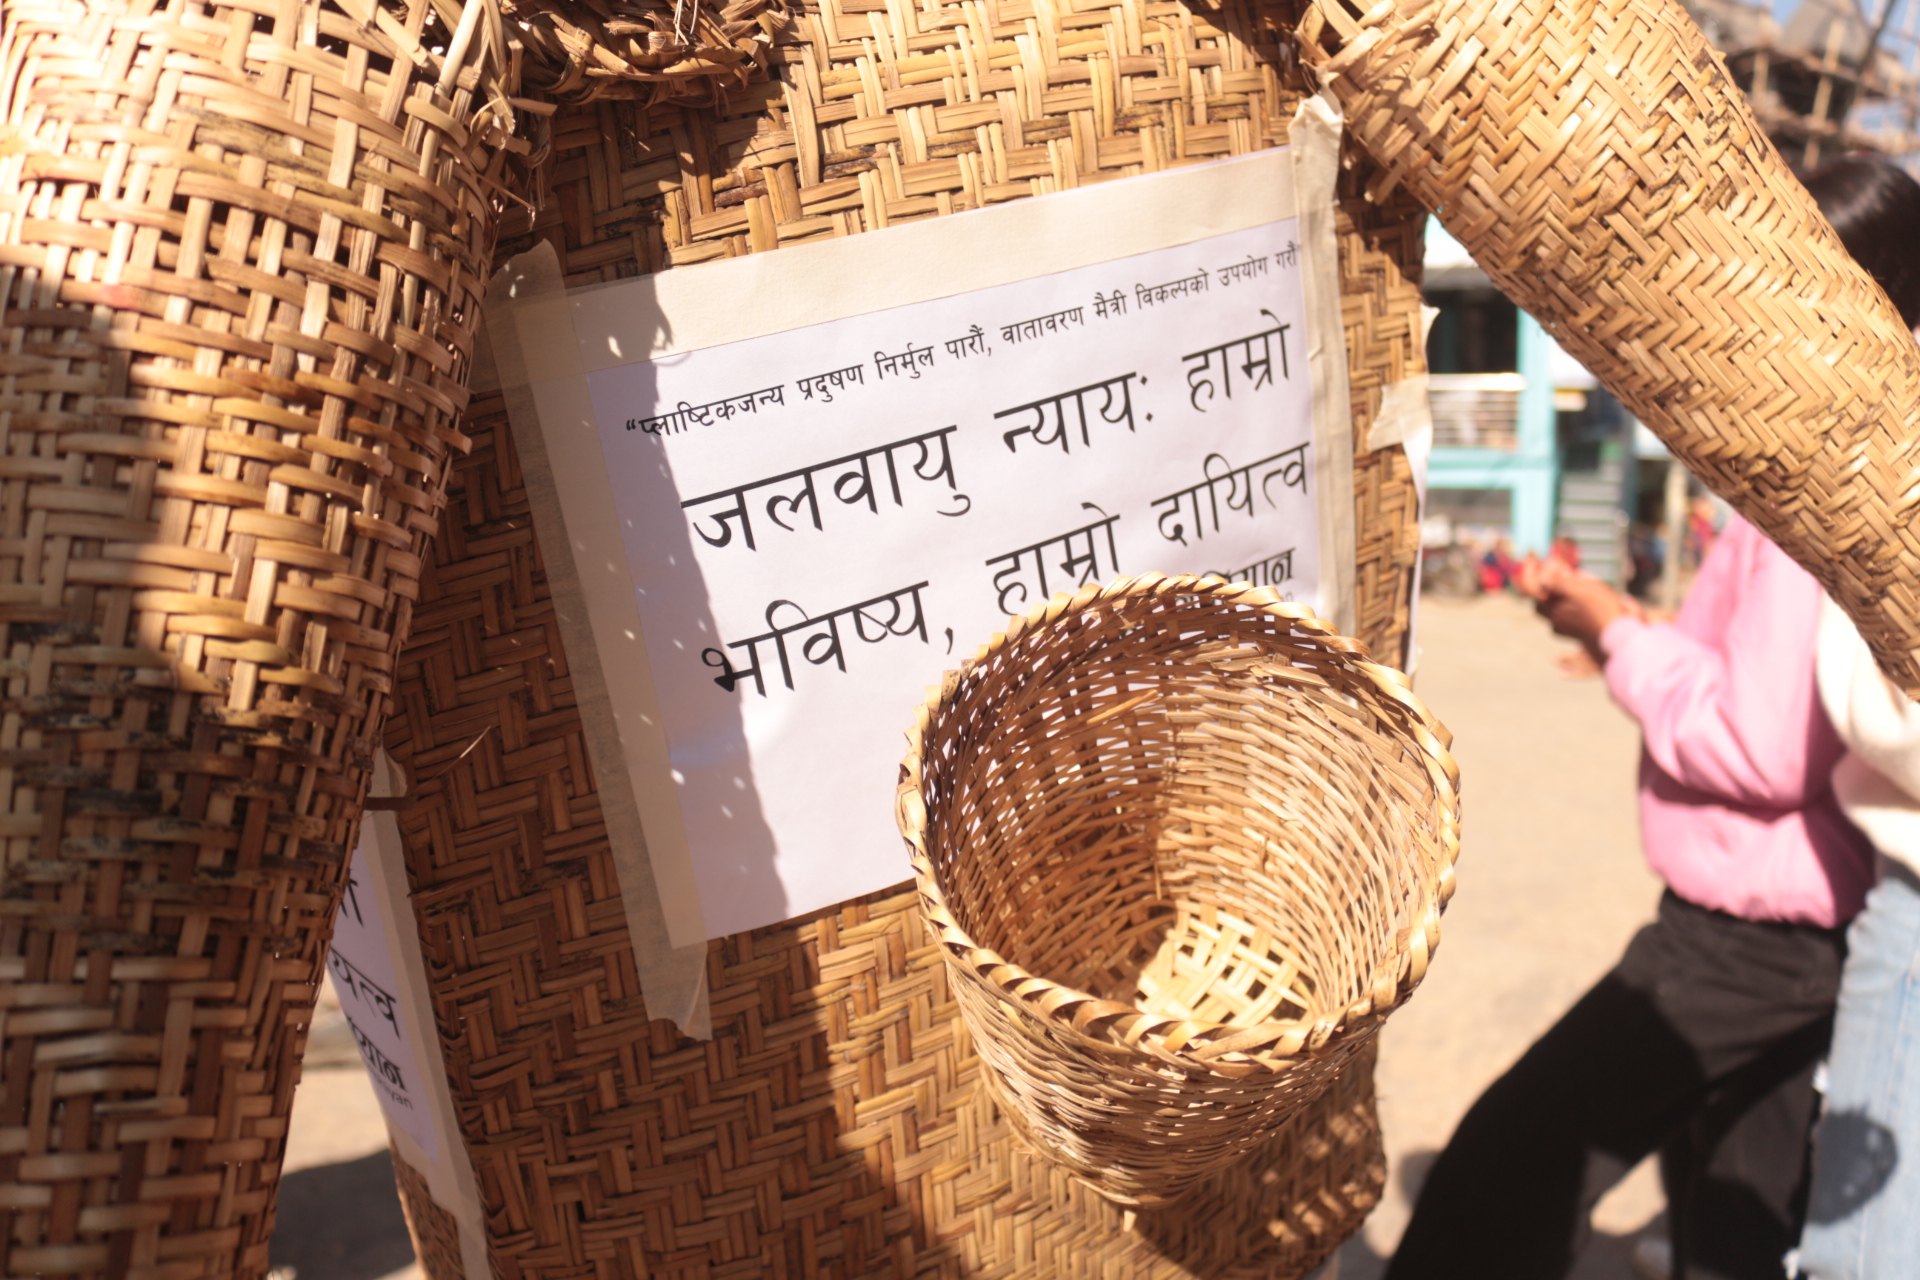 “प्लाष्टिकजन्य प्रदुषण निर्मुल पारौं, वातावरण मैत्री विकल्पको उपयोग गरौं
जलवायु न्याय: हाम्रो
भविष्य, हाम्रो दायित्व